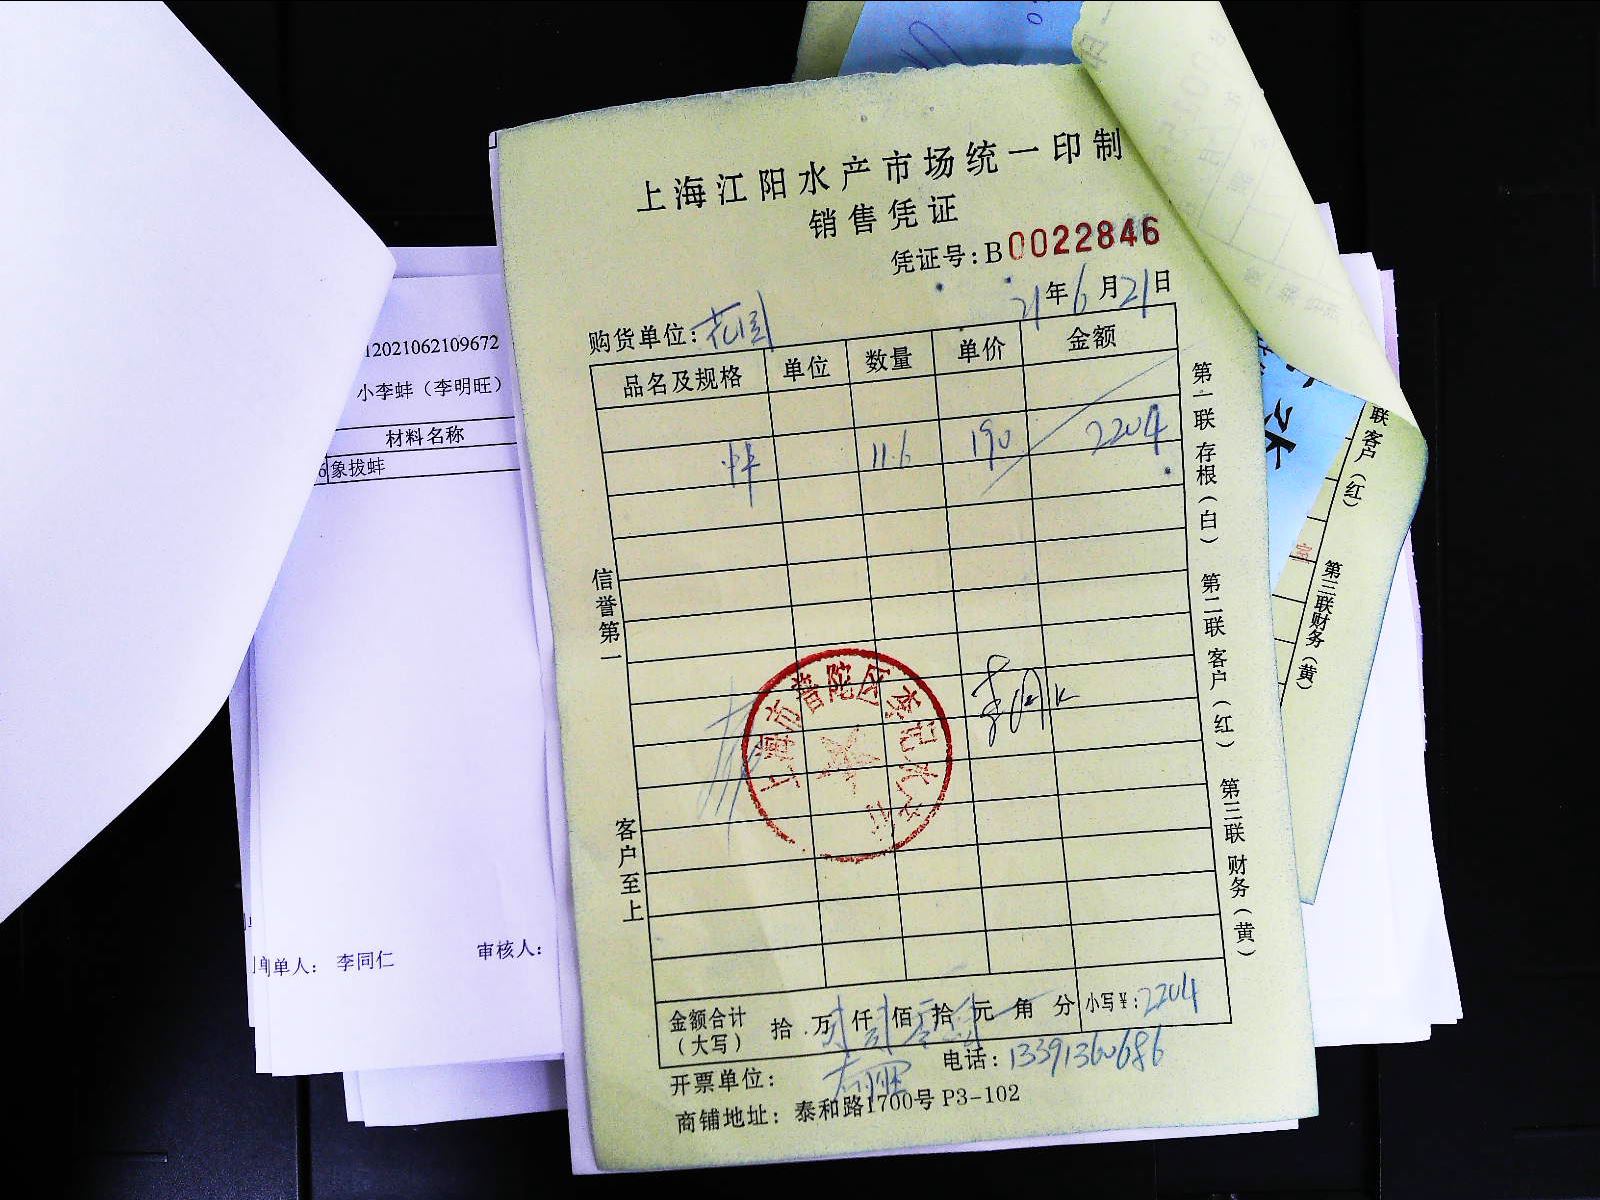 上海江阳水产市场统一印制
销售凭证
凭证号:B0022846
21年6月21日
购货单位:花园
品名及规格 单位 数量 单价 金额
蚌 11.6 190 2204
信誉第一
客户至上
第一联 存根(白) 第二联 客户(红) 第三联 财务(黄)
上海市普陀区
金额合计(大写) 拾 万 仟 佰 拾 元 角 分 小写¥:2204
开票单位: 电话:13391360686
商铺地址: 泰和路1700号 P3-102
12021062109672
小李蚌(李明旺)
材料名称
6 象拔蚌
制单人: 李同仁 审核人:
联 客户(红)
第三联财务(黄)